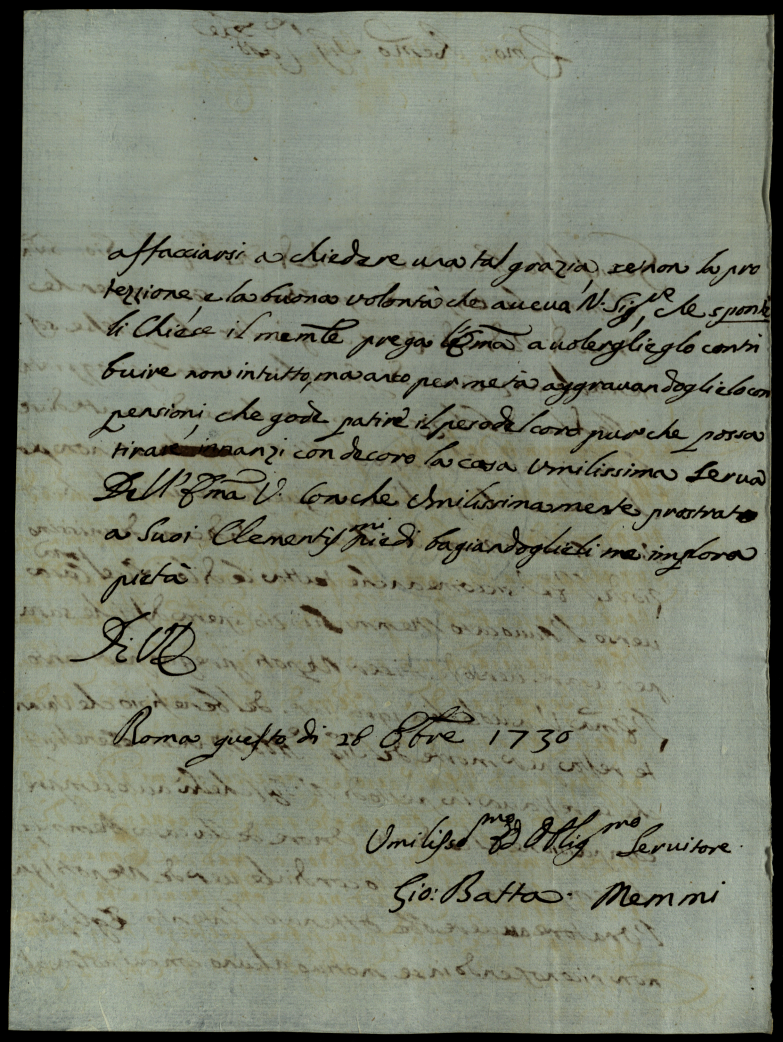 affacciarsi a chiedere una tal grazia, se non la pro
tezzione, e la buona volontà che aueua N. Sig.re, che sponte
li Chiese il mem.le prega l'Em̃a a uolerglieglo contri
buire non in tutto, ma anco per metà aggrauandoglielo con
pensioni, che gode patire il peso del coro pur che possa
tirare inanzi con decoro la casa Umilissima Serua
Dell' Em̃a V. Con che Umilissimamente prostrato
a Suoi Clementiss.mi piedi bagiandoglieli me implora
pietà
Di V E
Roma questo di 28 8bre 1730
Umiliss.mo ed Oblig.mo Seruitore
Gio: Batta Memmi